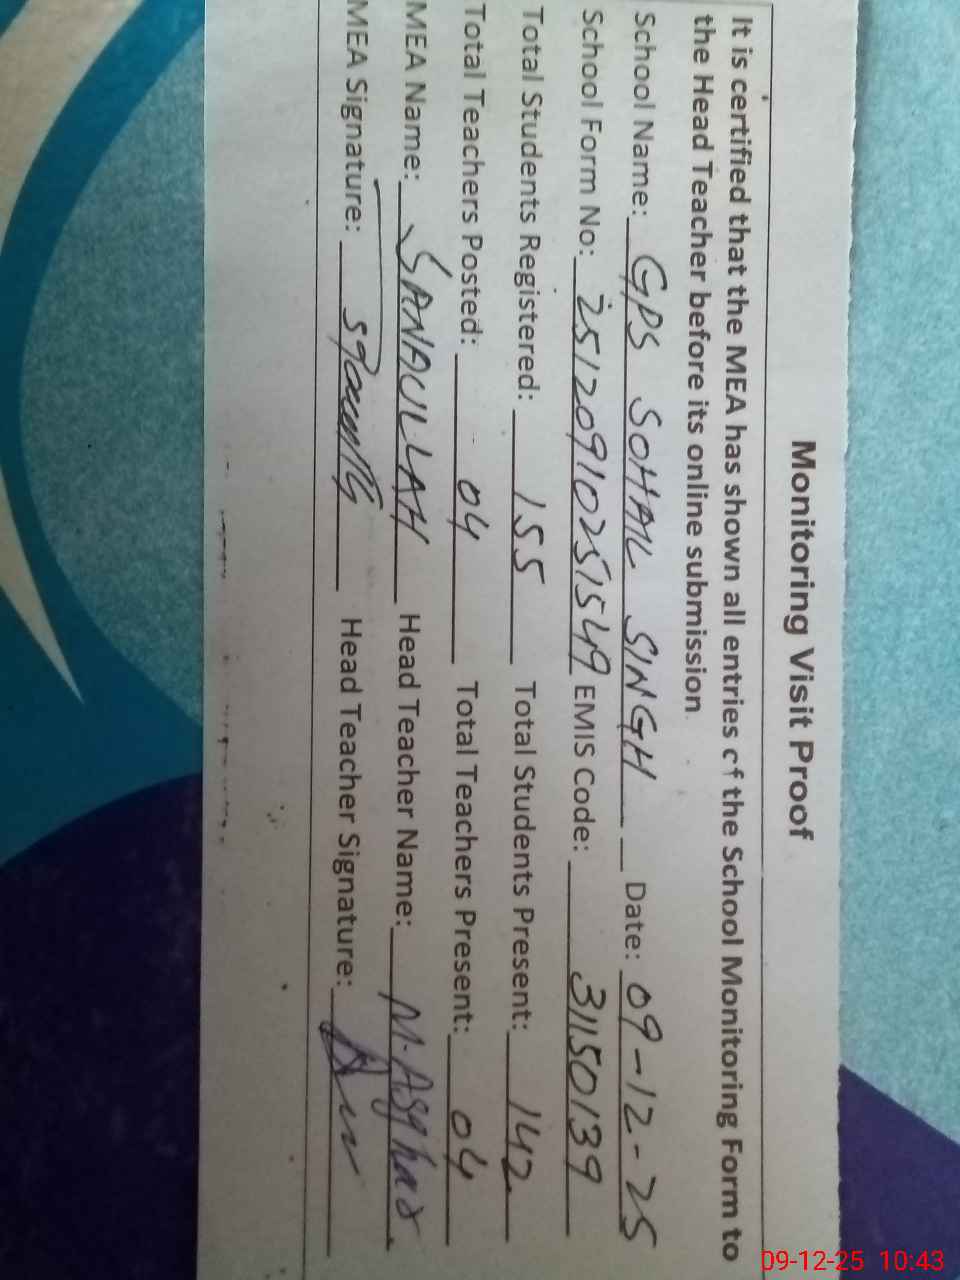 Monitoring Visit Proof
It is certified that the MEA has shown all entries of the School Monitoring Form to
the Head Teacher before its online submission
School Name: GPS SOHAL SINGH Date: 09-12-25
School Form No: 25120910251549 EMIS Code: 31150139
Total Students Registered: 155 Total Students Present: 142
Total Teachers Posted: 04 Total Teachers Present: 04
MEA Name: SANAULLAH Head Teacher Name: M. Asghar
MEA Signature: Head Teacher Signature:
09-12-25 10:43